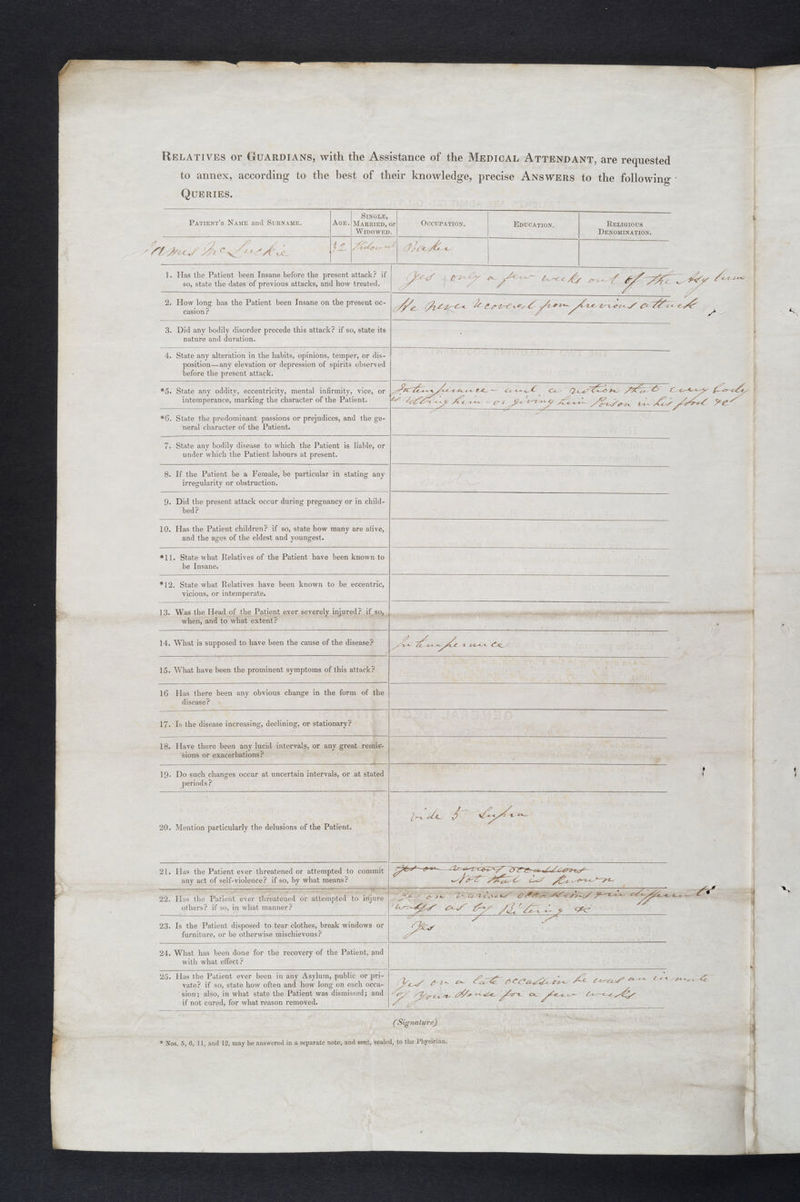 RELATIVES or GUARDIANS, with the Assistance of the MEDICAL ATTENDANT, are requested
to annex, according to the best of their knowledge, precise ANSWERS to the following
QUERIES.
PATIENT'S NAME and SURNAME.
AGE.
SINGLE,
MARRIED, or
WIDOWED.
OCCUPATION.
EDUCATION.
RELIGIOUS
DENOMINATION.
James McLuckie
32
Widower
Baker
1. Has the Patient been Insane before the present attack? if
so, state the dates of previous attacks, and how treated.
Yes only a few weeks out of the Asylum
2. How long has the Patient been Insane on the present oc-
casion?
He never recovered from previous attack
3. Did any bodily disorder precede this attack? if so, state its
nature and duration.
4. State any alteration in the habits, opinions, temper, or dis-
position—any elevation or depression of spirits observed
before the present attack.
*5. State any oddity, eccentricity, mental infirmity, vice, or
intemperance, marking the character of the Patient.
Intemperance - and a notion that every body
is killing him - or giving him Poison in his food &c
*6. State the predominant passions or prejudices, and the ge-
neral character of the Patient.
7. State any bodily disease to which the Patient is liable, or
under which the Patient labours at present.
8. If the Patient be a Female, be particular in stating any
irregularity or obstruction.
9. Did the present attack occur during pregnancy or in child-
bed?
10. Has the Patient children? if so, state how many are alive,
and the ages of the eldest and youngest.
*11. State what Relatives of the Patient have been known to
be Insane.
*12. State what Relatives have been known to be eccentric,
vicious, or intemperate.
13. Was the Head of the Patient ever severely injured? if so,
when, and to what extent?
14. What is supposed to have been the cause of the disease?
Intemperance
15. What have been the prominent symptoms of this attack?
16 Has there been any obvious change in the form of the
disease?
17. Is the disease increasing, declining, or stationary?
18. Have there been any lucid intervals, or any great remis-
sions or exacerbations?
19. Do such changes occur at uncertain intervals, or at stated
periods?
20. Mention particularly the delusions of the Patient.
vide 5 Supra
21. Has the Patient ever threatened or attempted to commit
any act of self-violence? if so, by what means?
Yes on various occassions
Not that is known
22. Has the Patient ever threatened or attempted to injure
others? if so, in what manner?
Yes on various occassions & in different
ways as by Biting &c
23. Is the Patient disposed to tear clothes, break windows or
furniture, or be otherwise mischievous?
Yes
24. What has been done for the recovery of the Patient, and
with what effect?
25. Has the Patient ever been in any Asylum, public or pri-
vate? if so, state how often and how long on each occa-
sion; also, in what state the Patient was dismissed; and
if not cured, for what reason removed.
Yes on a late occassion he was an inmate
of Your House for a few weeks
(Signature)
* Nos. 5, 6, 11, and 12, may be answered in a separate note, and sent, sealed, to the Physician.